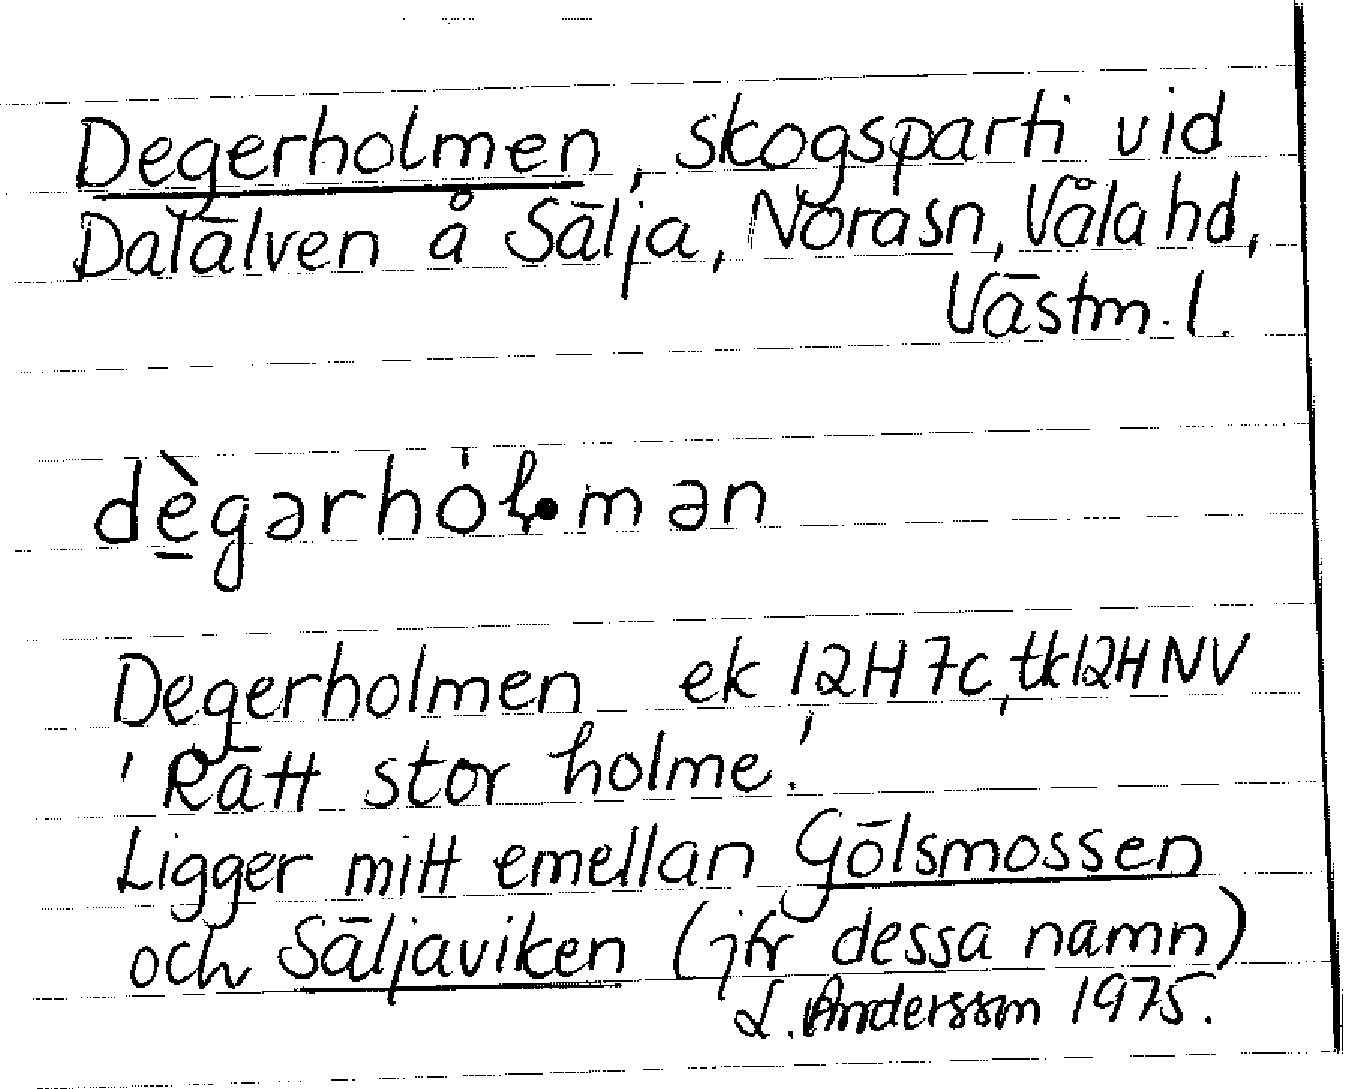 Degerholmen, skogsparti vid
Dalälven å Sälja, Nora sn, Våla hd,
Västm. l.
dè̠gərhòɫ•mən
Degerholmen ek 12H 7c, tk 12H NV
'Rätt stor holme.'
Ligger mitt emellan Gölsmossen
och Säljaviken (jfr dessa namn)
L. Andersson 1975.